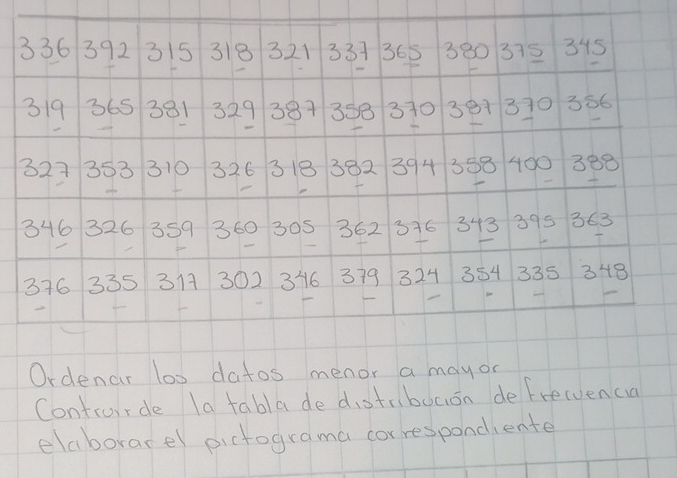 336 392 315 318 321 337 365 380 375 345
319 365 381 329 387 358 370 387 370 356
327 353 310 326 318 382 394 358 400 388
346 326 359 360 305 362 376 343 395 363
376 335 317 302 346 379 324 354 335 348
Ordenar los datos menor a mayor
Contruirde la tabla de distribución de frecuencia
elaborar el pictograma correspondiente